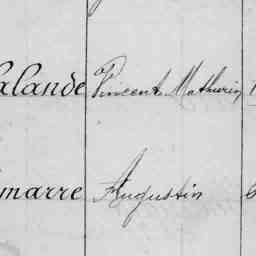 alande Vincent Mathurin
marre Augustin